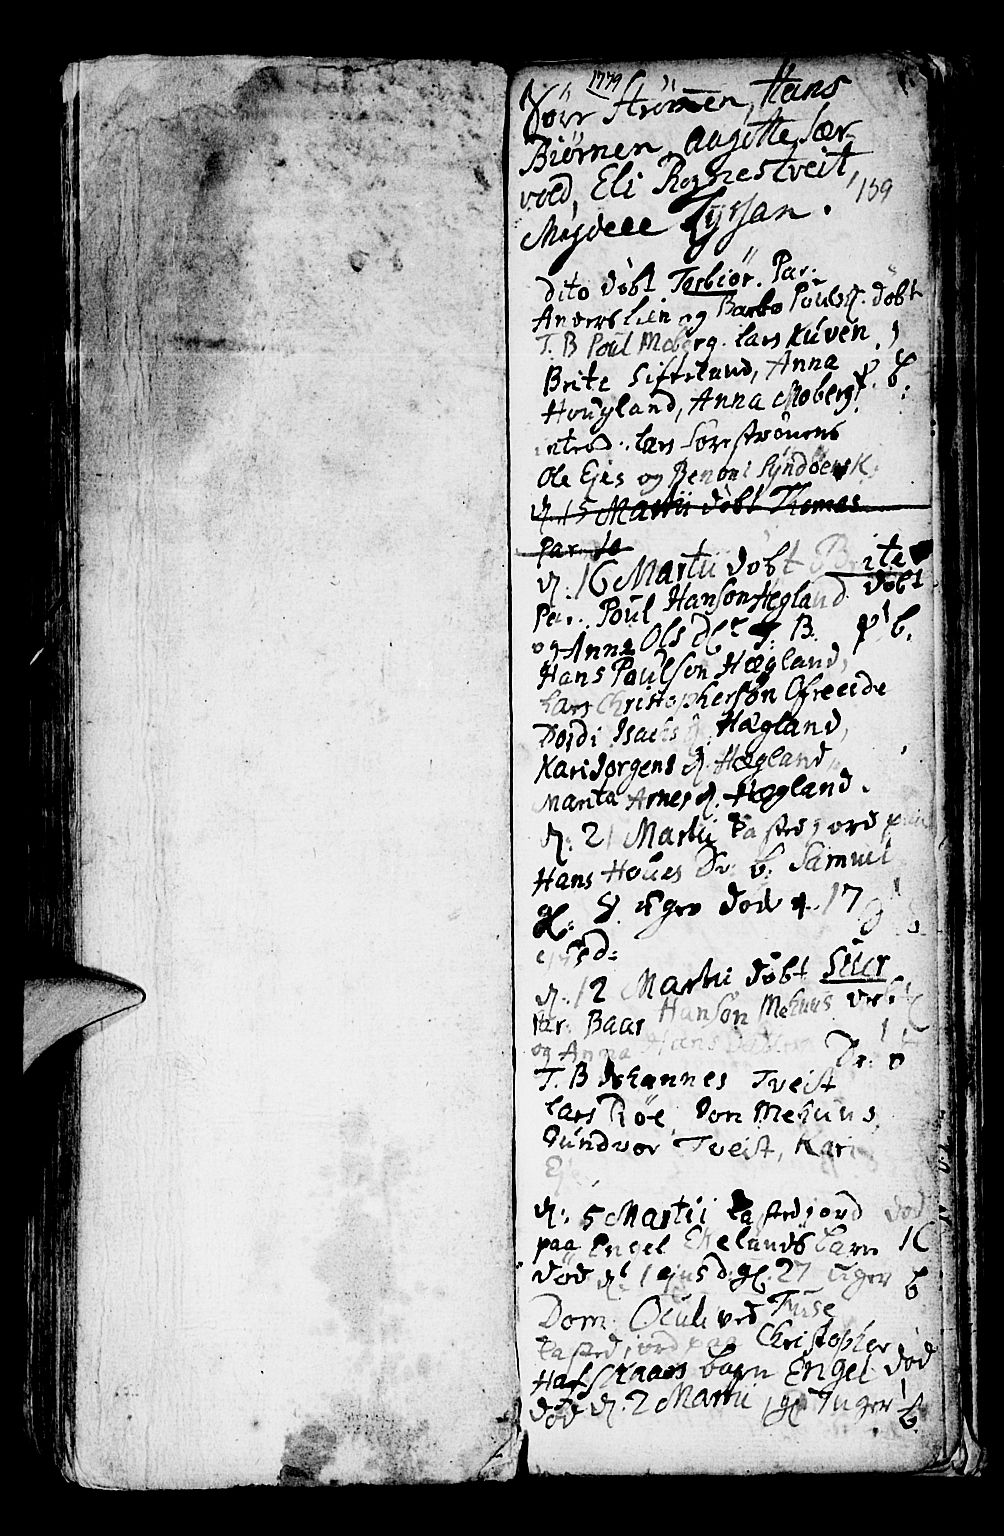 1779
Strømen, Hans
Biørnen, aagotte Sær-
vold, Eli Rognestveit,
Magdele Tyssan.
139
dito døbt Torbiør. Par.
Anders Lien og Barbo Pouls d. døbt
T. B Poul Moberg. Lars Kuven,
Brite Giffelund, Anna p. b.
Hougland, Anna Moberg.
introd. Lars Sørestrønens
Ole Ejes og Benoni Syndøensk.
d. 15 Martii døbt Thomas
Par. to
d. 16 Martii døbt Brite
Par. Poul Hanson Hegland døbt
og Anna Ols dtr T. B. p b.
Hans Paulson Hægland,
Lars Christopherson Ofreeide
Dordi Isachs d. Hægland,
Kari Jørgens d. Hægland
Marita Arnes d. Hægland.
d. 21 Martii kasted jord paa
Hans Houes Dr. b. Samuel
gl. 8 uger død d. 17
ejusd:
d. 12 Martii døbt Siur
Par: Baar Hanson Mehuus
og Anna Hans Datter
T. B Johannes Tveit
Lars Røe, Jon Mehuus,
Gundvor Tveit, Kari
d. 5 Martii kasted jord død
paa Engel Ekelands barn 16
død d. 1 ejusd. gl. 27 uger b
Dom. Oculi ved Fuse
kasted jord paa Christopher
Hafskaars barn Engel død
død d. 2 Martii, gl. 7 uger b.